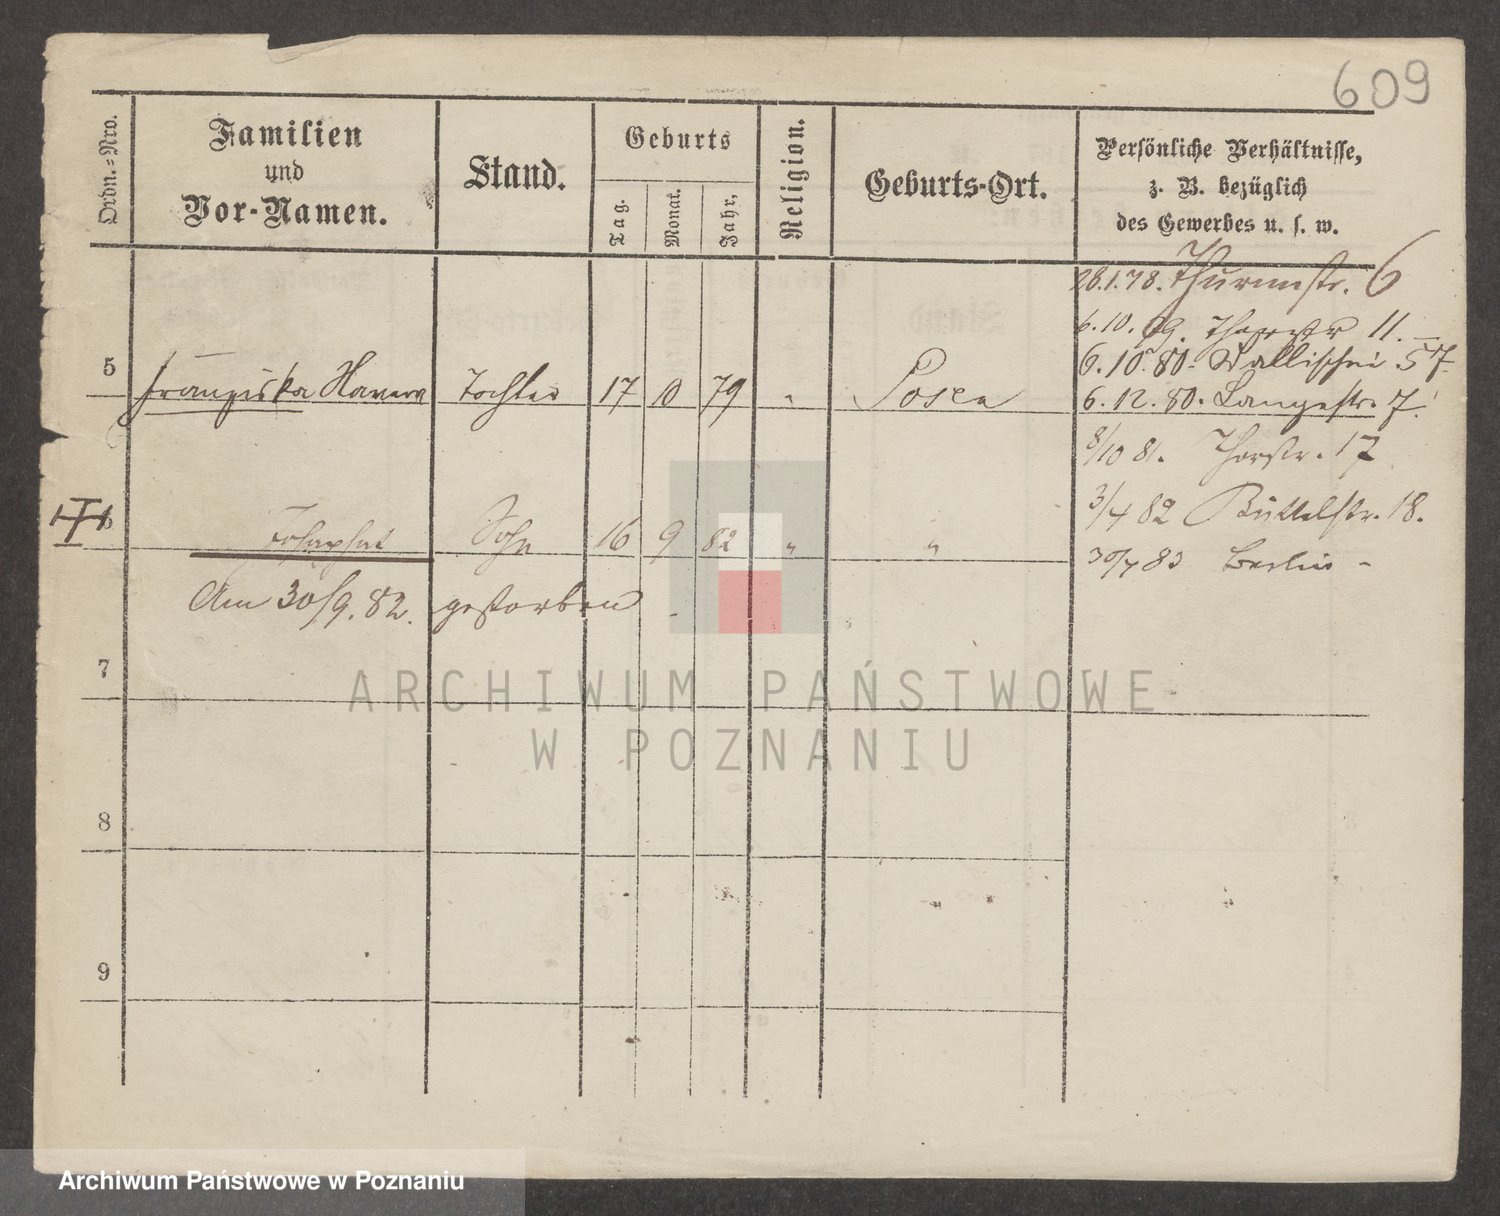 609
Ordn.=Nro.
Familien
und
Vor-Namen.
Stand.
Geburts
Tag.
Monat.
Jahr.
Religion.
Geburts-Ort.
Persönliche Verhältnisse,
z. B. bezüglich
des Gewerbes u. s. w.
28.1.78. Thurmstr. 6
6.10.79. Thorstr 11.
6.10.80. Wallischei 57.
5 Franziska Tochter 17 10 79 " Posen 6.12.80. Langestr. 7.
8/10 81. Thorstr. 17
6 Josaphat Sohn 16 9 82 " " 3/4 82 Büttelstr. 18.
30/7 83 Berlin -
Am 30/9.82. gestorben
7
8
9
ARCHIWUM PAŃSTWOWE
W POZNANIU
Archiwum Państwowe w Poznaniu